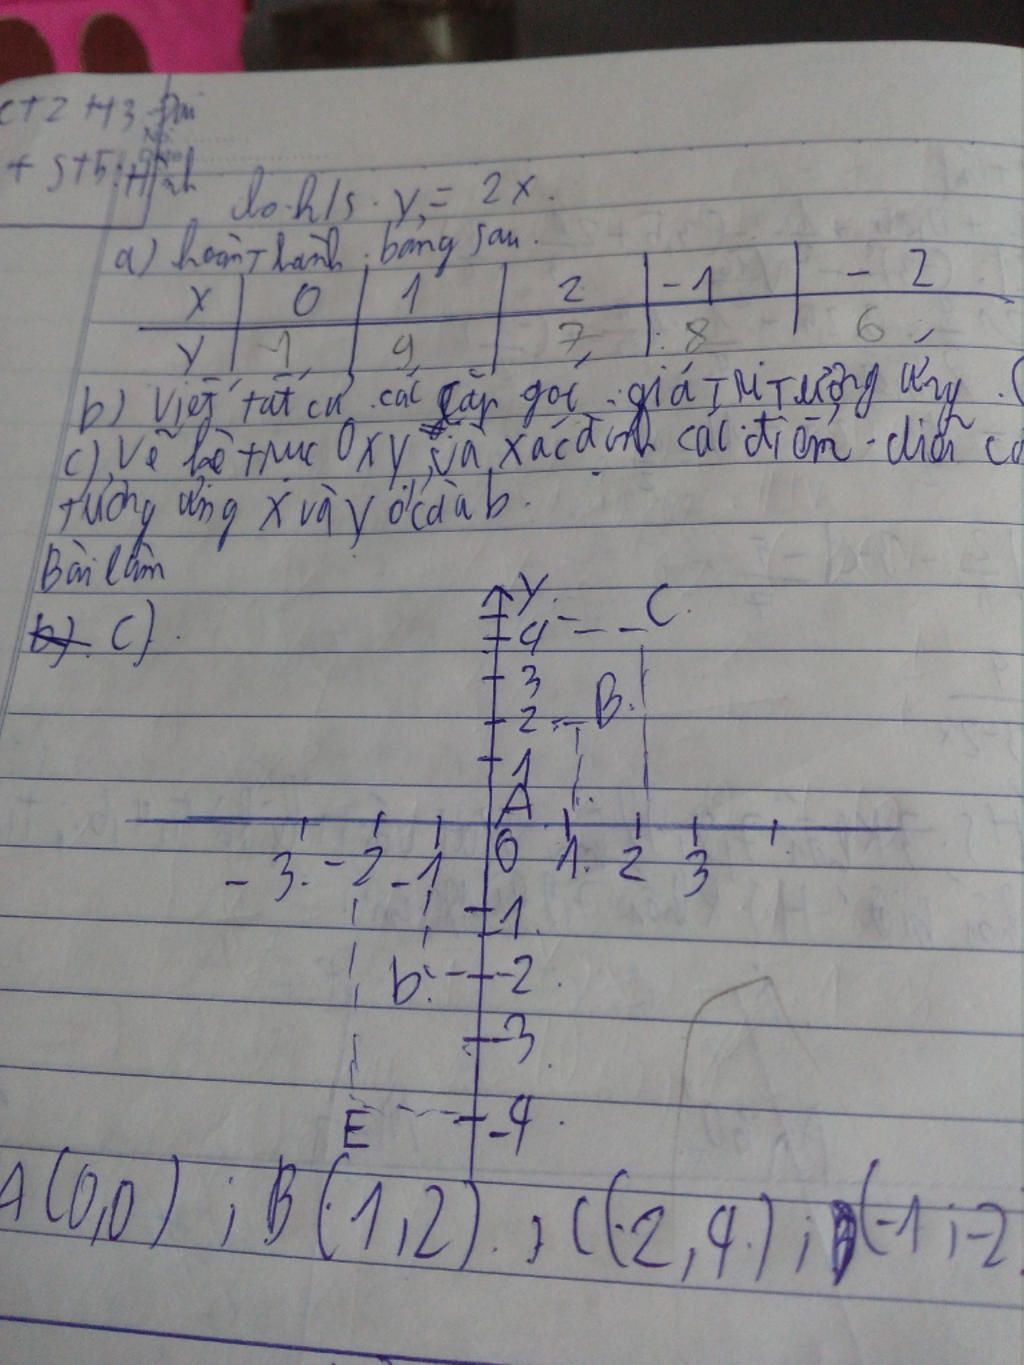 + 5+5: Hình
cho h/s. y = 2x.
a) hoàn thành bảng sau.
X 0 1 2 -1 - 2
Y 1 9 7 8 6
b) Viết tất cả các cặp giá trị tương ứng. (
c) Vẽ hệ trục Oxy và xác định các điểm
tương ứng x và y ở b.
Bài làm
b) C).
Y
4 C
3
2 B
1
A
- 3. - 2 -1 0 1 2 3
-1
D -2
-3
E -4
A(0,0) ; B(1,2) ; C(2,4) ; D(-1;-2